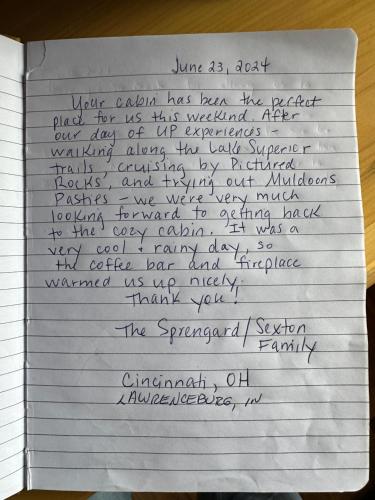 June 23, 2024
Your cabin has been the perfect
place for us this weekend. After
our day of UP experiences -
walking along the Lake Superior
trails, cruising by Pictured
Rocks, and trying out Muldoons
Pasties - we were very much
looking forward to getting back
to the cozy cabin. It was a
very cool & rainy day, so
the coffee bar and fireplace
warmed us up nicely.
Thank you!
The Sprengard/Sexton
Family
Cincinnati, OH
LAWRENCEBURG, IN